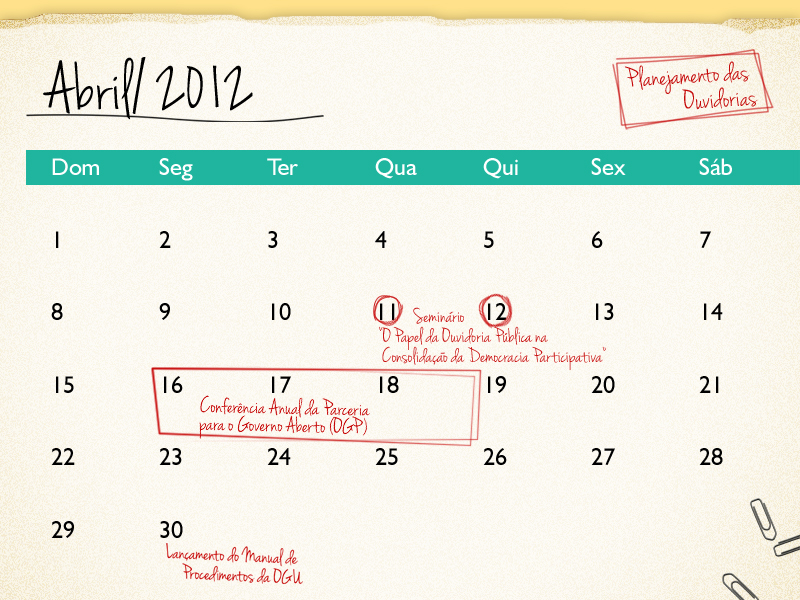 Abril/ 2012
Planejamento das
Ouvidorias
Dom Seg Ter Qua Qui Sex Sáb
1 2 3 4 5 6 7
8 9 10 11 Seminário 12 13 14
"O Papel da Ouvidoria Pública na
Consolidação da Democracia Participativa"
15 16 17 18 19 20 21
Conferência Anual da Parceria
para o Governo Aberto (OGP)
22 23 24 25 26 27 28
29 30
Lançamento do Manual de
Procedimentos da OGU